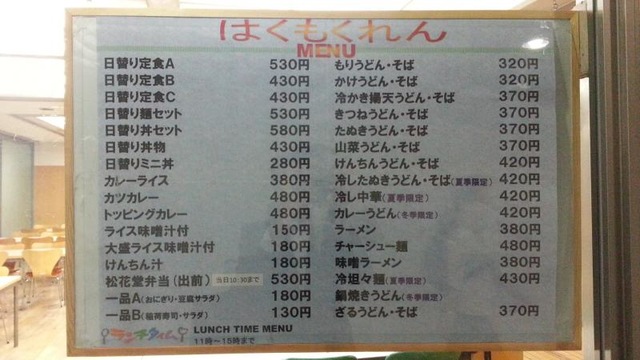 はくもくれん
MENU
日替り定食A 530円
日替り定食B 430円
日替り定食C 430円
日替り麺セット 530円
日替り丼セット 580円
日替り丼物 430円
日替りミニ丼 280円
カレーライス 380円
カツカレー 480円
トッピングカレー 480円
ライス味噌汁付 150円
大盛ライス味噌汁付 180円
けんちん汁 180円
松花堂弁当(出前) 当日10:30まで 530円
一品A(おにぎり・豆腐サラダ) 180円
一品B(稲荷寿司・サラダ) 130円
もりうどん・そば 320円
かけうどん・そば 320円
冷かき揚天うどん・そば 370円
きつねうどん・そば 370円
たぬきうどん・そば 370円
山菜うどん・そば 370円
けんちんうどん・そば 420円
冷したぬきうどん・そば(夏季限定) 420円
冷し中華(夏季限定) 420円
カレーうどん(冬季限定) 420円
ラーメン 380円
チャーシュー麺 480円
味噌ラーメン 380円
冷坦々麺(夏季限定) 430円
鍋焼きうどん(冬季限定)
ざるうどん・そば 370円
ランチタイム LUNCH TIME MENU
11時〜15時まで